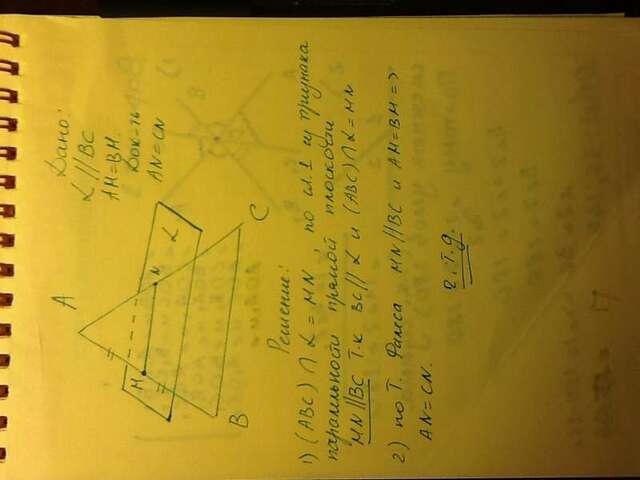 Дано:
α // BC
AM=BM.
Док-ть
AN=CN
A
M
N
α
B
C
Решение:
1) (ABC) ∩ α = MN по сл. 1 из признака
паралльности прямой плоскости
MN//BC т.к BC//α и (ABC) ∩ α = MN
2) по Т. Фалеса MN//BC и AM=BM =>
AN=CN.
ч.т.д.